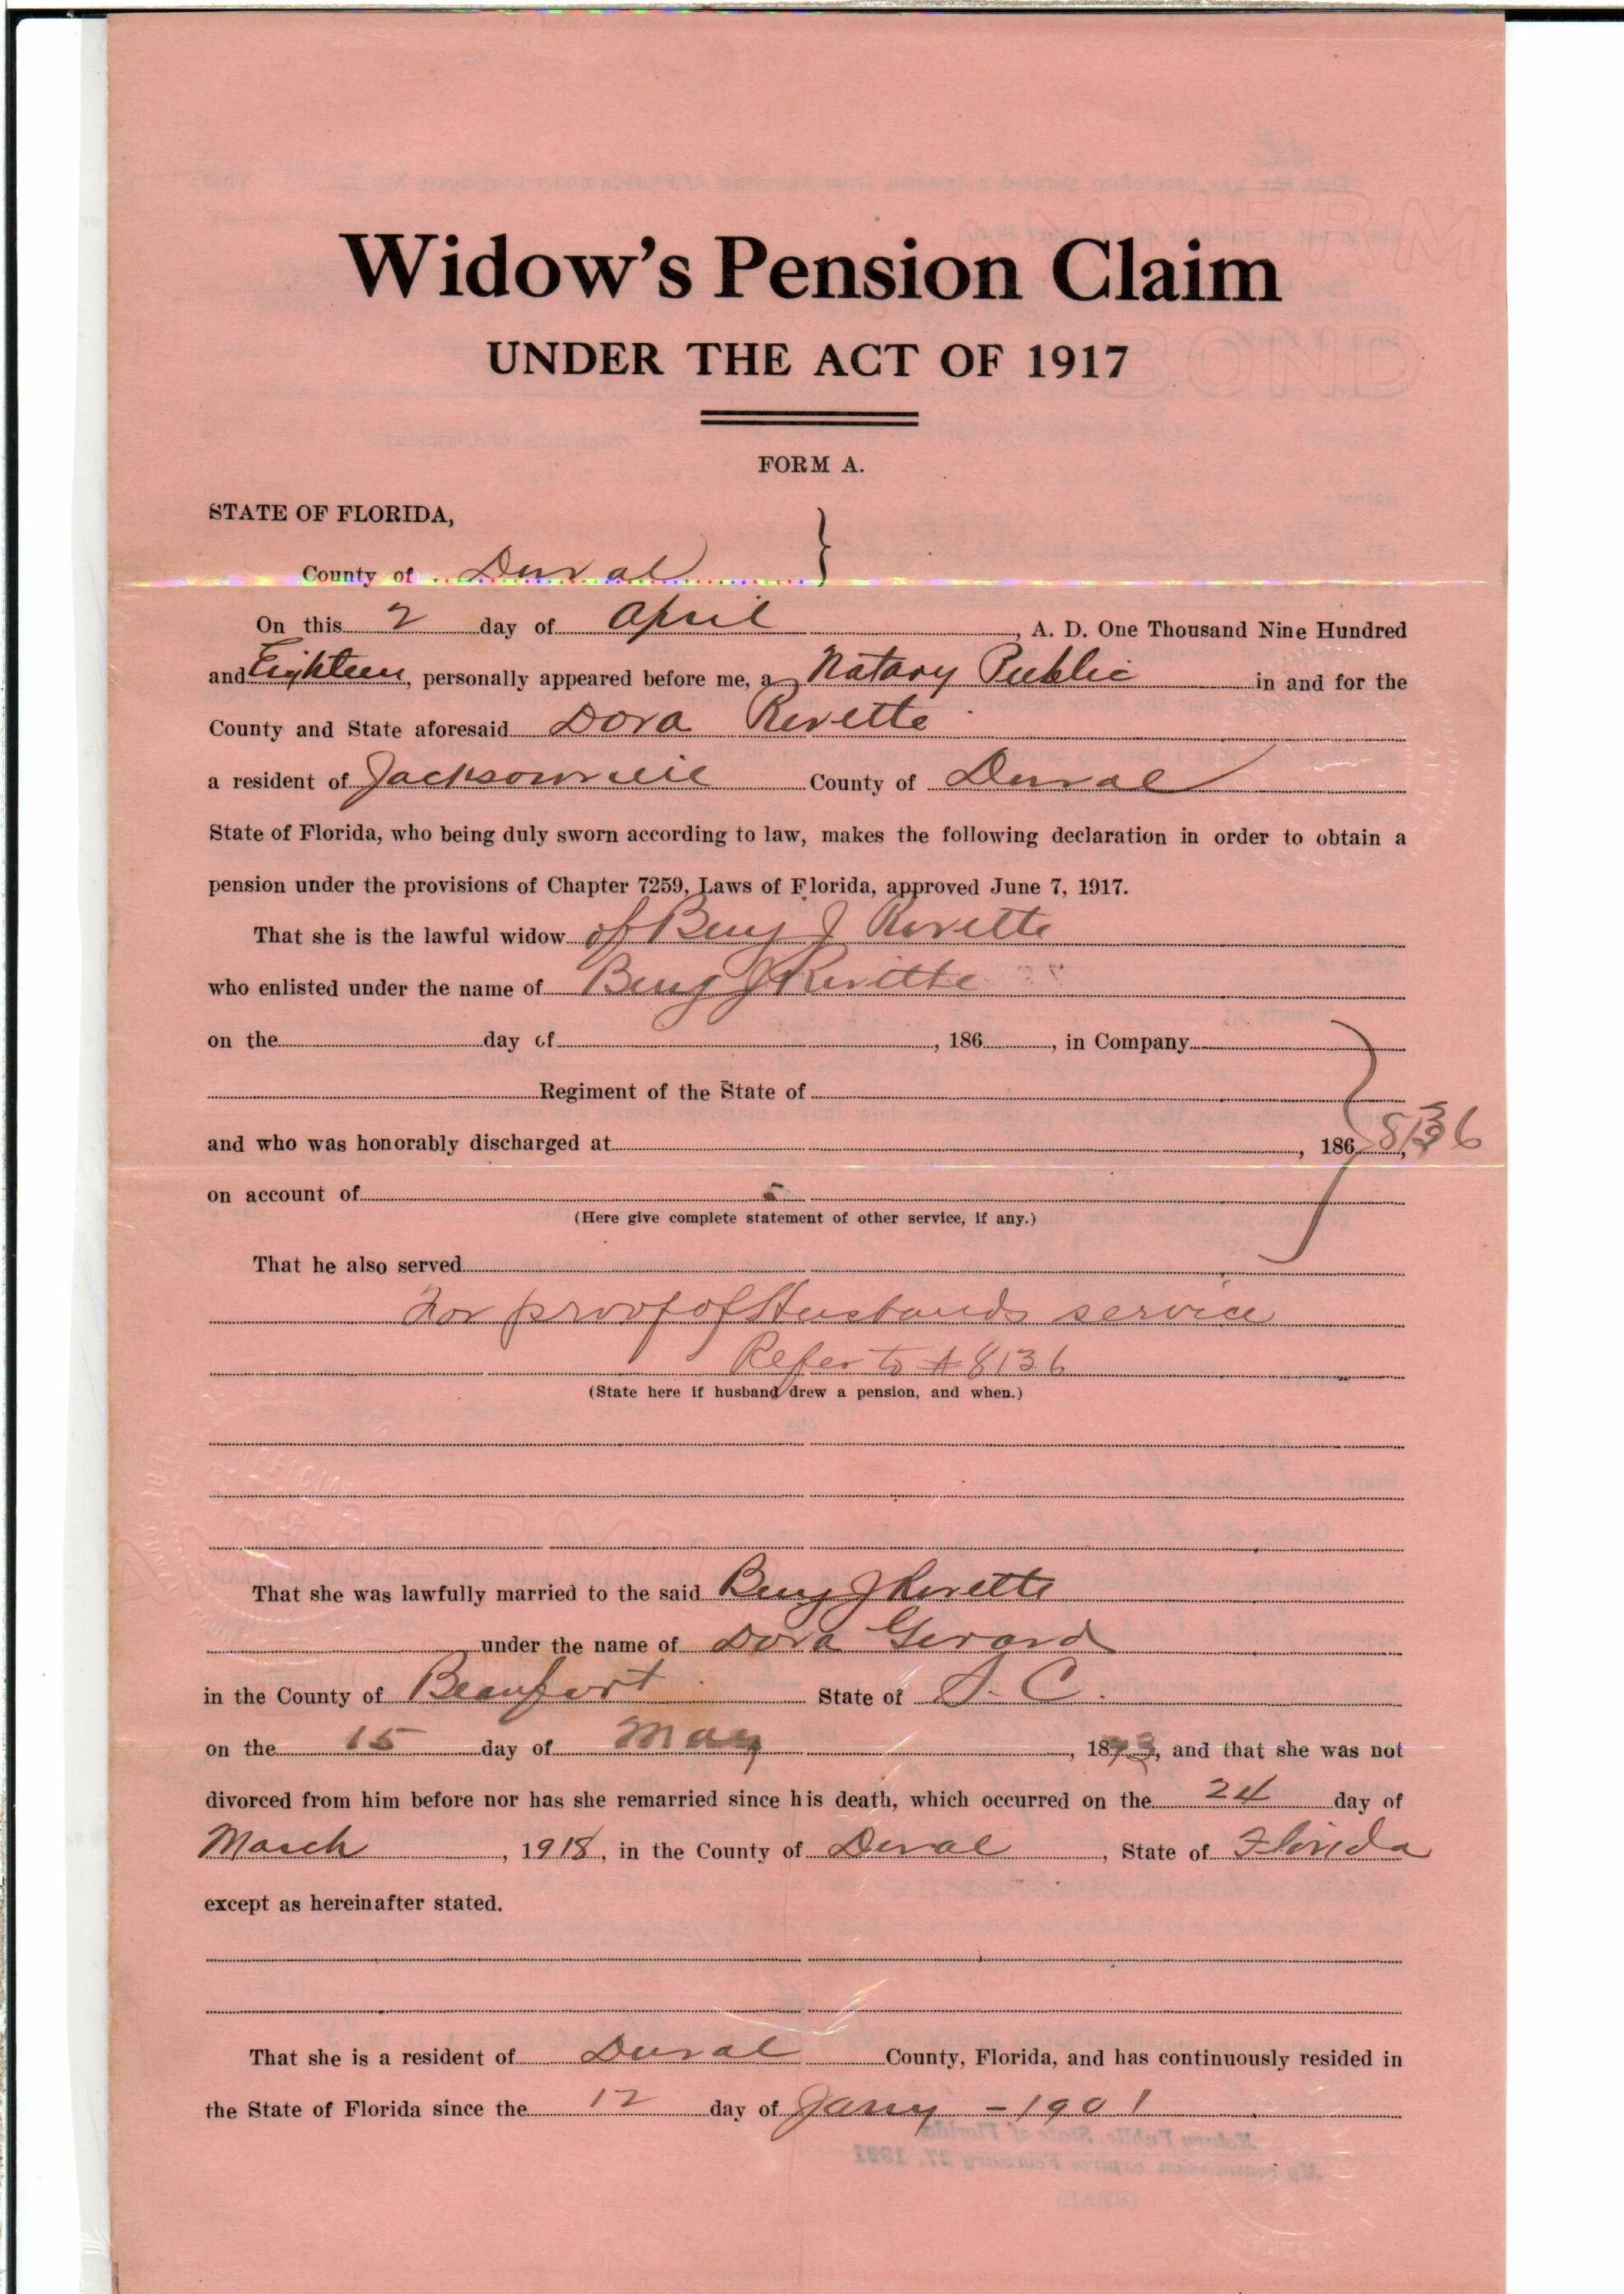 Widow's Pension Claim
UNDER THE ACT OF 1917
FORM A.
STATE OF FLORIDA,
County of Duval
On this 2 day of April, A. D. One Thousand Nine Hundred
and Eighteen, personally appeared before me, a Notary Public in and for the
County and State aforesaid Dora Revette
a resident of Jacksonville County of Duval
State of Florida, who being duly sworn according to law, makes the following declaration in order to obtain a
pension under the provisions of Chapter 7259, Laws of Florida, approved June 7, 1917.
That she is the lawful widow of Benj J Revette
who enlisted under the name of Benj J Revette
on the day of , 186 , in Company
Regiment of the State of
and who was honorably discharged at , 186 , 8136
on account of
(Here give complete statement of other service, if any.)
That he also served
For proof of Husbands service
Refer to # 8136
(State here if husband drew a pension, and when.)
That she was lawfully married to the said Benj J Revette
under the name of Dora Gerard
in the County of Beaufort State of S. C.
on the 15 day of May , 1873, and that she was not
divorced from him before nor has she remarried since his death, which occurred on the 24 day of
March , 1918, in the County of Duval , State of Florida
except as hereinafter stated.
That she is a resident of Duval County, Florida, and has continuously resided in
the State of Florida since the 12 day of Jany - 1901